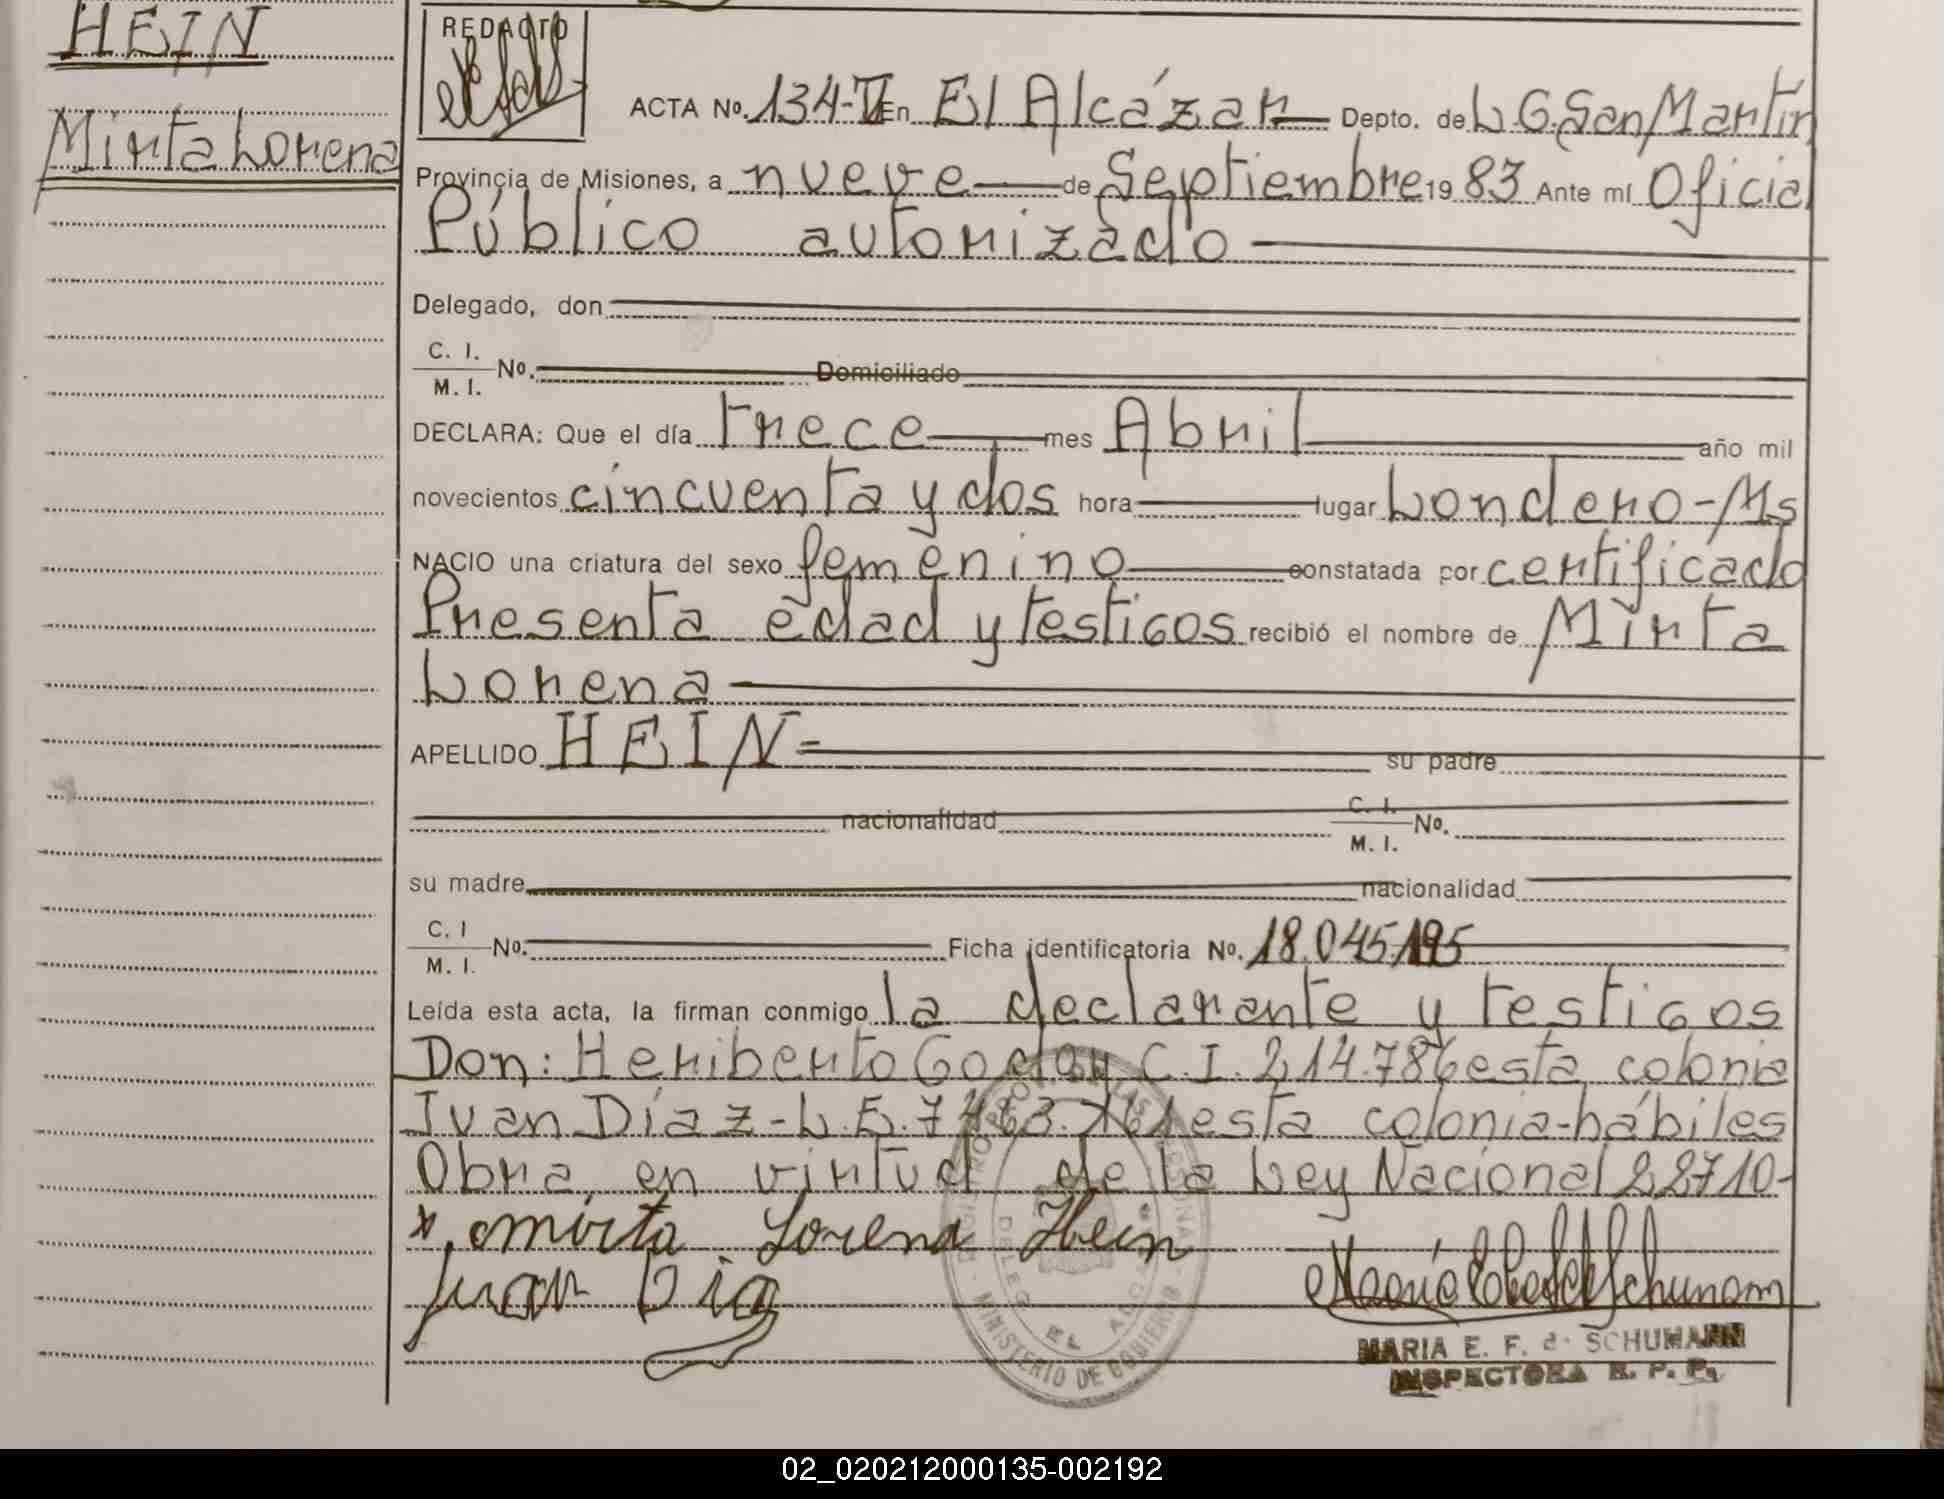 HEIN
Mirta Lorena
REDACTO
ACTA No. 134-T En El Alcázar Depto. de L G. San Martín
Provincia de Misiones, a nueve de Septiembre 1983 Ante mí Oficial
Público autorizado
Delegado, don
C. I.
M. I. No. Domiciliado
DECLARA: Que el día trece mes Abril año mil
novecientos cincuenta y dos hora lugar Londero-Ms
NACIO una criatura del sexo femenino constatada por certificado
Presenta edad y testigos recibió el nombre de Mirta
Lorena
APELLIDO HEIN= su padre
nacionalidad C. I.
M. I. No.
su madre nacionalidad
C. I
M. I. No. Ficha identificatoria No. 18.045.195
Leída esta acta, la firman conmigo la declarante y testigos
Don: Heriberto Godoy C.I. 214.786 esta colonia
Juan Díaz-L.E. esta colonia-hábiles
Obra, en virtud de la Ley Nacional 22710-
x mirta Lorena Hein
Juan Dia
MARIA E. F. de SCHUMANN
INSPECTORA R. P. P.
MINISTERIO DE GOBIERNO
EL ALCAZAR
02_020212000135-002192